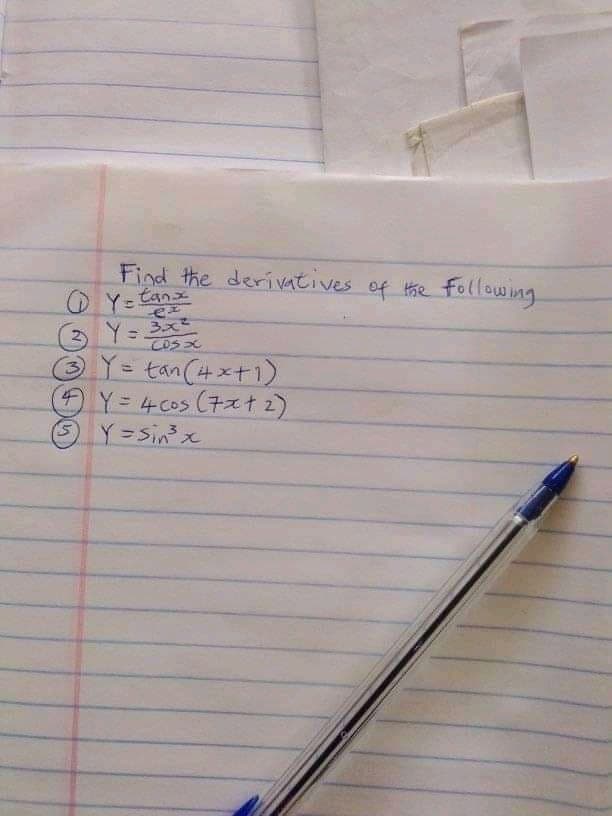 Find the derivatives of the following
① Y = tanx/eˣ
② Y = 3x²/cosx
③ Y = tan(4x+1)
④ Y = 4cos(7x+2)
⑤ Y = sin³x